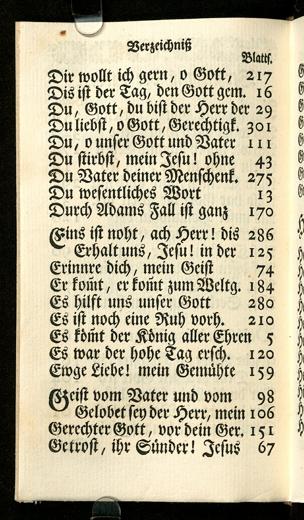 Verzeichniß
Blatts.
Dir wollt ich gern, o Gott, 217
Dis ist der Tag, den Gott gem. 16
Du, Gott, du bist der Herr der 29
Du liebst, o Gott, Gerechtigk. 301
Du, o unser Gott und Vater 111
Du stirbst, mein Jesu! ohne 43
Du Vater deiner Menschenk. 275
Du wesentliches Wort 13
Durch Adams Fall ist ganz 170
Eins ist noht, ach Herr! dis 286
Erhalt uns, Jesu! in der 125
Erinnre dich, mein Geist 74
Er kom̃t, er kom̃t zum Weltg. 184
Es hilft uns unser Gott 280
Es ist noch eine Ruh vorh. 210
Es köm̃t der König aller Ehren 5
Es war der hohe Tag ersch. 120
Ewge Liebe! mein Gemühte 159
Geist vom Vater und vom 98
Gelobet sey der Herr, mein 106
Gerechter Gott, vor dein Ger. 151
Getrost, ihr Sünder! Jesus 67